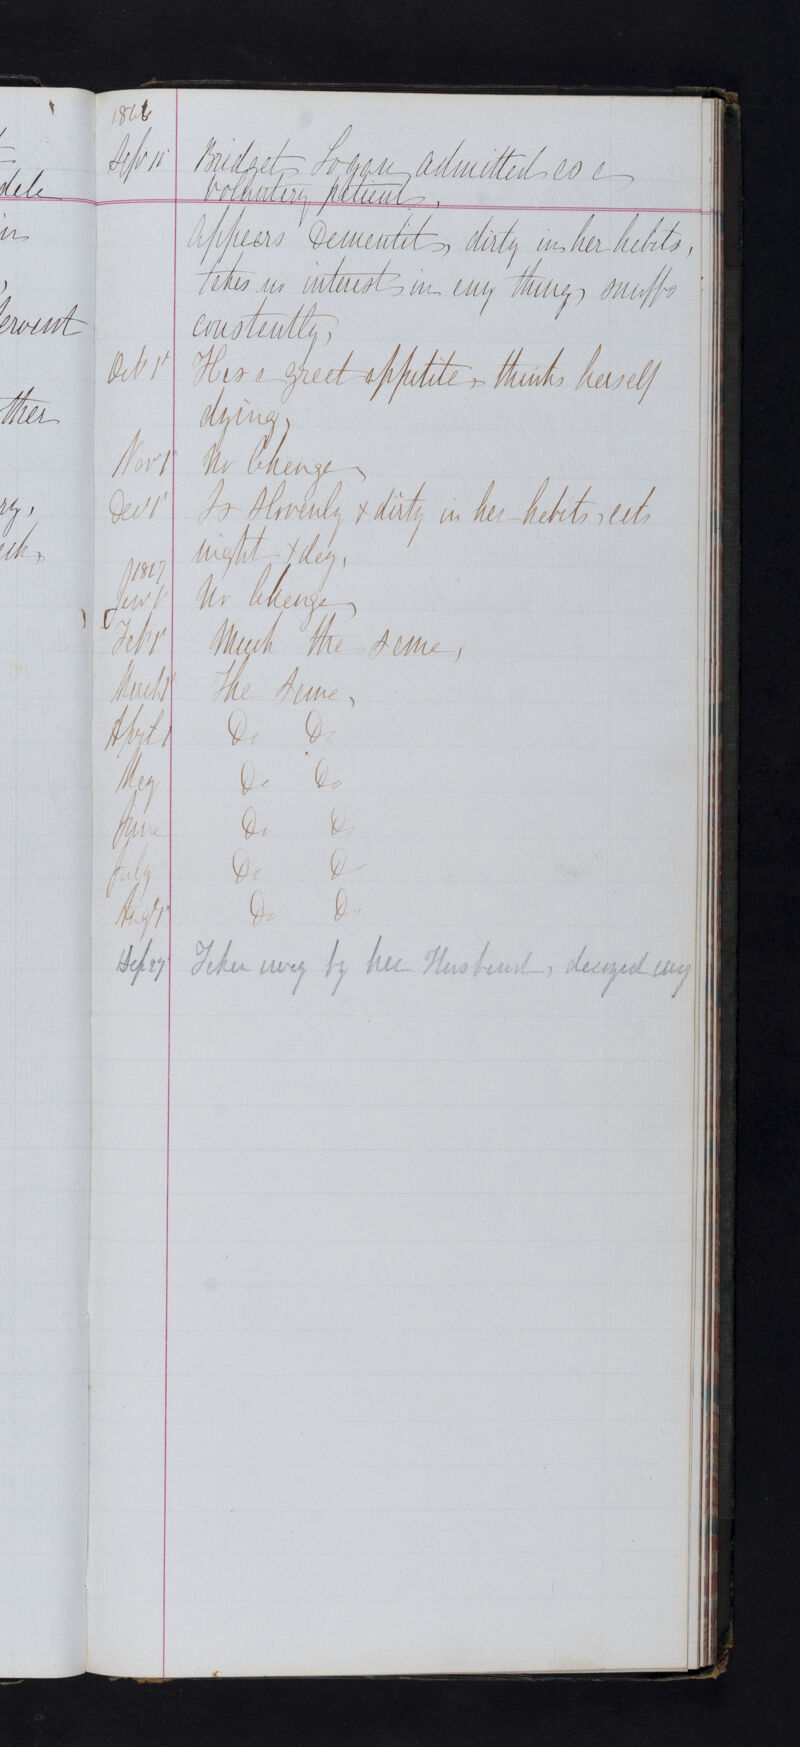 dele
in
ervent
ther
ry,
1866
Sept 11 Bridget Logan admitted as a
voluntary patient,
appears Dementit, dirty in her habits,
takes no interest in any thing, snuffs
constantly,
Oct 1st Has a great appetite, thinks herself
dying,
Nov 1st No Change,
Dec 1st Is slovenly & dirty in her habits, eats
night & day,
1867
Jan 1st No Change,
Feb 1st Much the same,
March 1st The same,
April 1 Do Do
May Do Do
June Do Do
July Do D
Augt 1st Do Do
Sep 27 Taken away by her Husband,